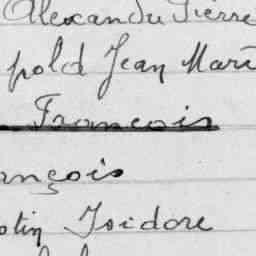 Alexandre Pierre
pold Jean Mari
Francois
ançois
stin Isidore